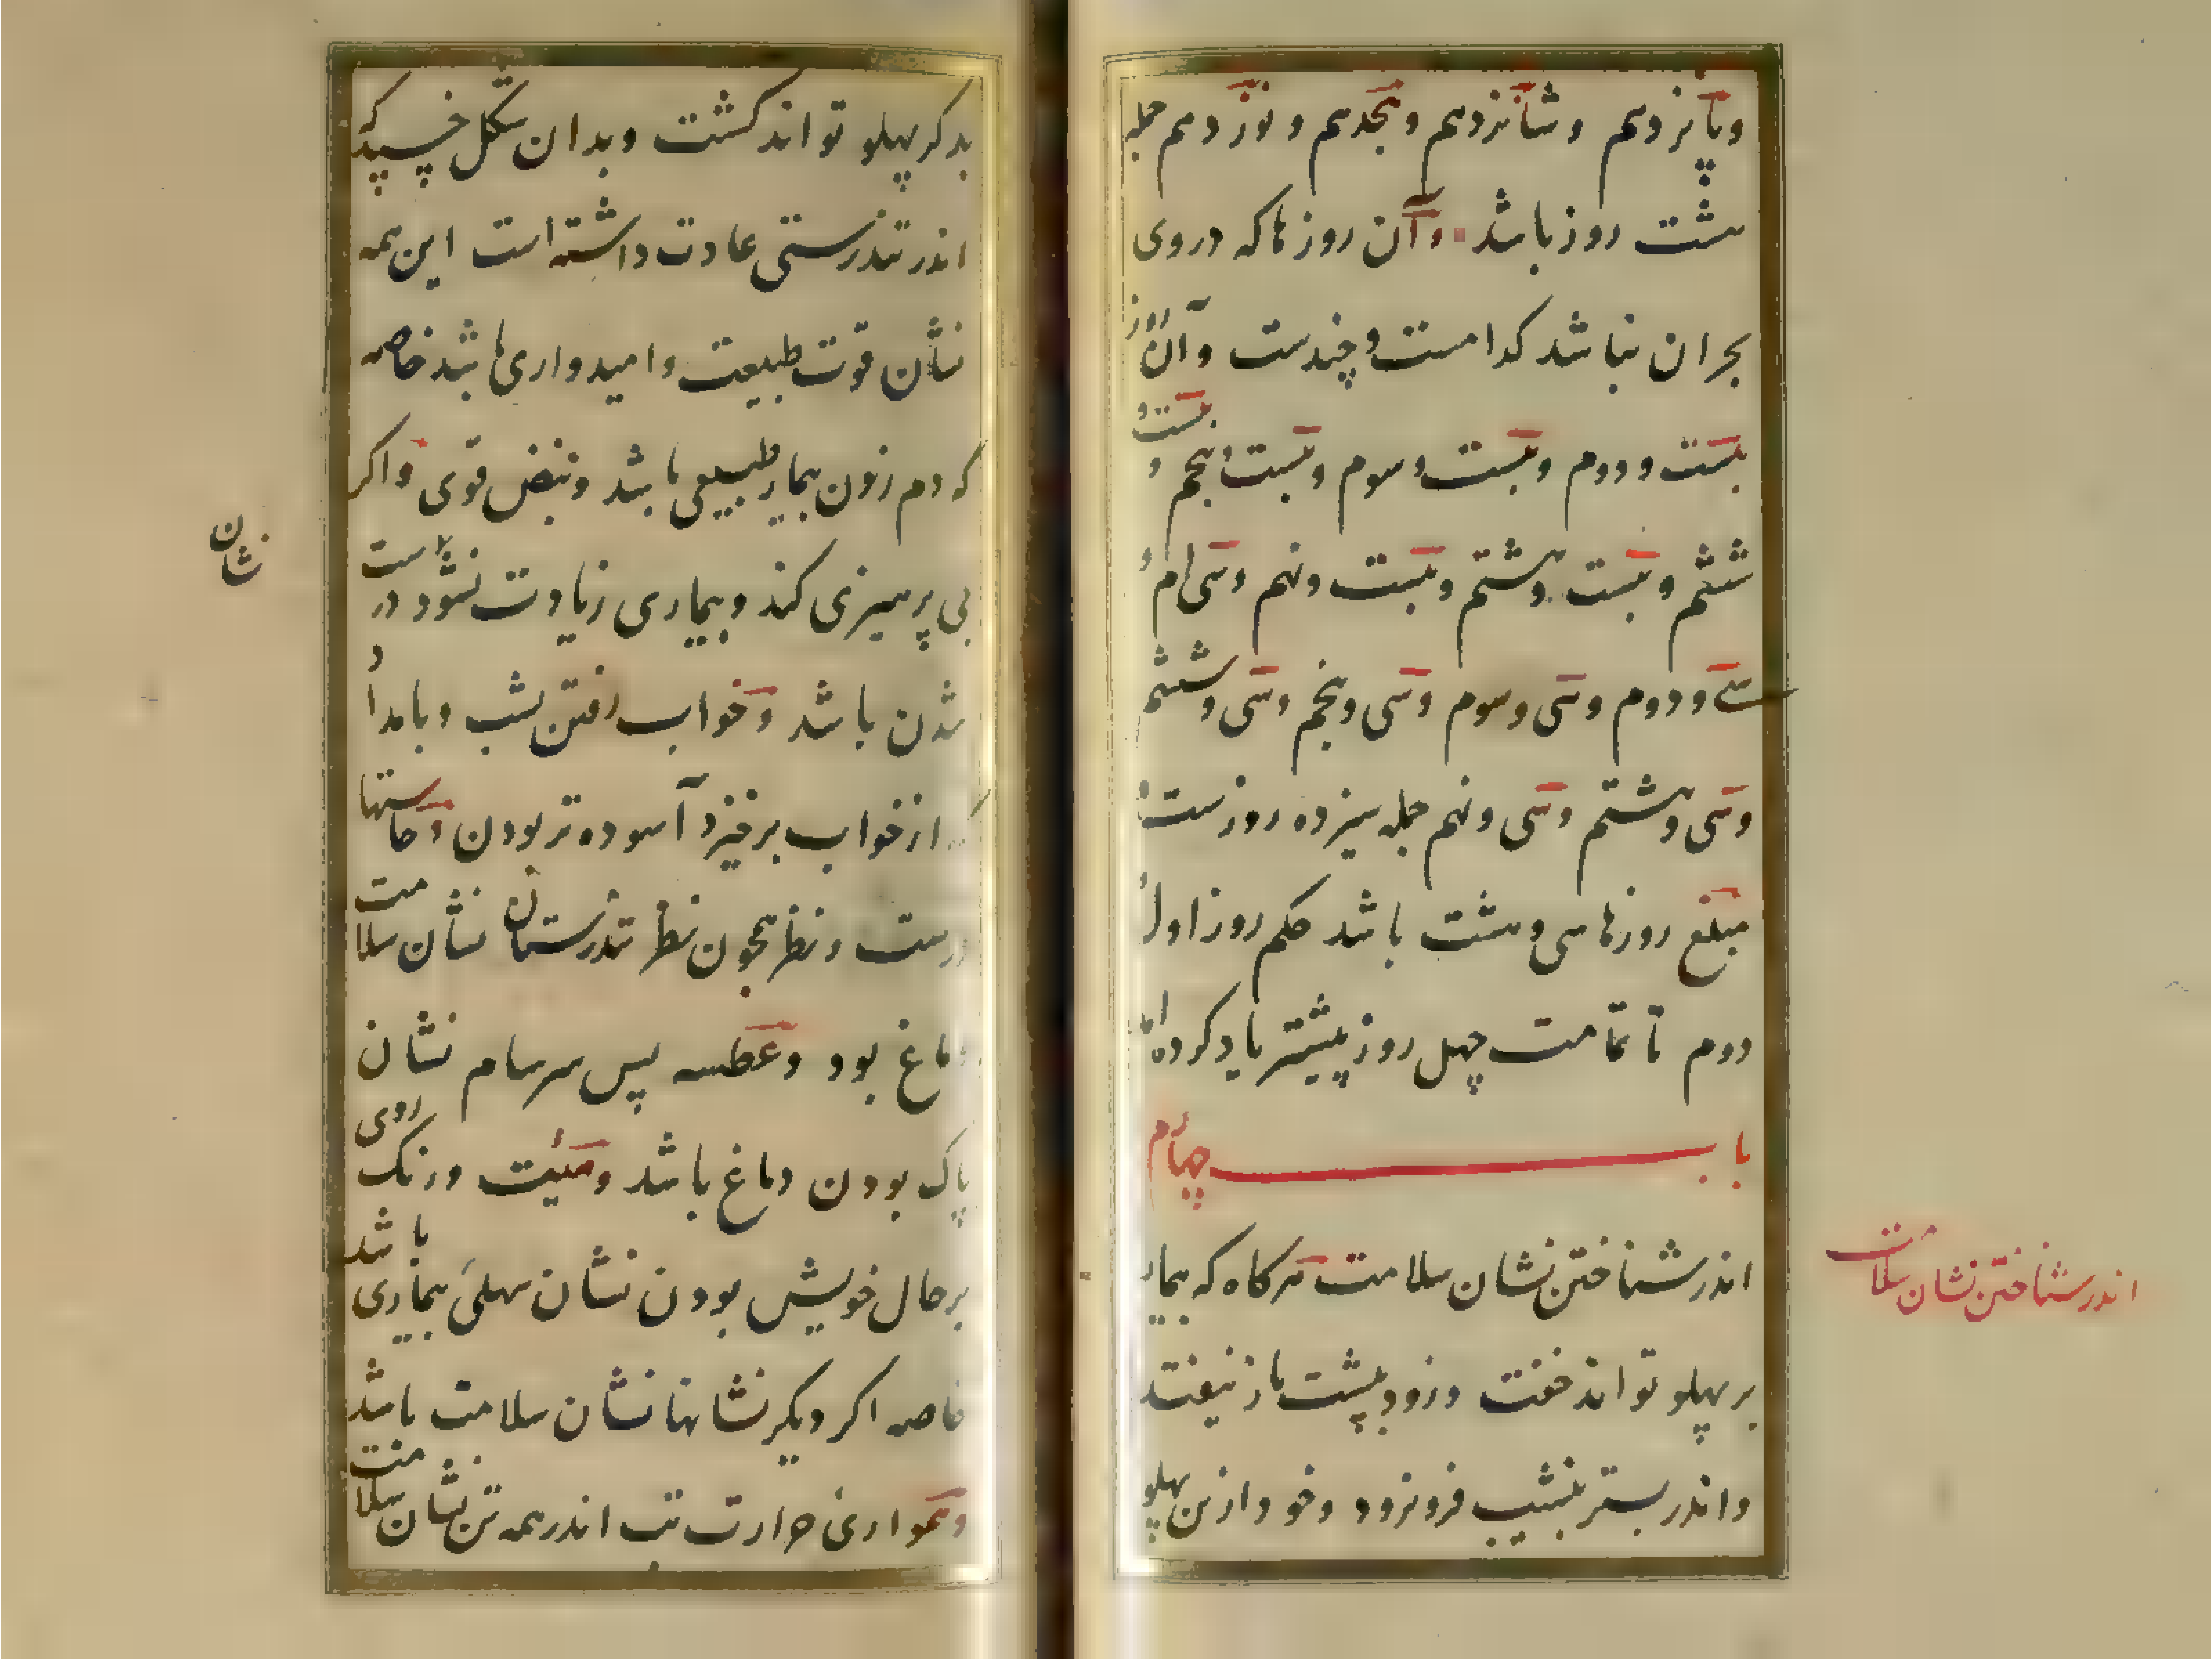 وپانزدهم وشانزدهم وهجدهم ونوزدهم جمله
هشت روز باشد وآن روزها که دروی
بحران نباشد کدامست وچندست وآن روز
بیست ودوم وبیست وسوم وبیست وپنجم وبیست و
ششم وبیست وهشتم وبیست ونهم وسی ام و
سی ودوم وسی وسوم وسی وپنجم وسی وششم
وسی وهشتم وسی ونهم جمله سیزده روزست
مبلغ روزها سی وهشت باشد حکم روز اول و
دوم تا تمامت چهل روز پیشتر یاد کرده اند
باب چهارم
اندر شناختن نشان سلامت هرکاه که بیمار
بر پهلو تواند خفت وزود بپشت باز نیفتد
واندر بستر بنشیب فرو نرود وخود ازین پهلو
اندر شناختن نشان سلامت
بدکر پهلو تواند کشت وبدان شکل خسپد که
اندر تندرستی عادت داشته است این همه
نشان قوت طبیعت وامیدواری باشد خاصه
که دم زدن بیمار طبیعی باشد ونبض قوی واکر
بی پرهیزی کند وبیماری زیادت نشود درست
نشان
شدن باشد وخواب رفتن شب وبامداد
که از خواب برخیزد آسوده تر بودن وحاستها
درست ونظر همچون نظر تندرستان نشان سلامت
دماغ بود وعطسه پس سرسام نشان
پاک بودن دماغ باشد وهیئت ورنک روی
برحال خویش بودن نشان سهلی بیماری باشد
خاصه اکر دیکر نشانها نشان سلامت باشد
وهمواری حرارت تب اندر همه تن نشان سلامت